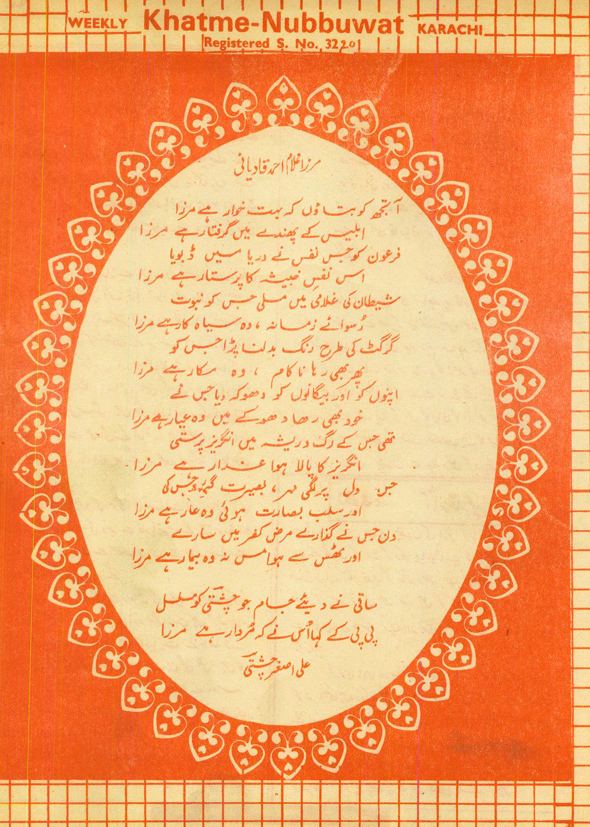 WEEKLY Khatme-Nubbuwat KARACHI
Registered S. No. 3220
مرزا غلام احمد قادیانی
آ تجھ کو بتاؤں کہ بہت خوار ہے مرزا
ابلیس کے پھندے میں گرفتار ہے مرزا
فرعون کو جس نفس نے دریا میں ڈبویا
اس نفسِ خبیثہ کا پرستار ہے مرزا
شیطان کی غلامی میں ملی جس کو نبوت
رُسوائے زمانہ ، وہ سیاہ کار ہے مرزا
گرگٹ کی طرح رنگ بدلنا پڑا جس کو
پھر بھی رہا ناکام ، وہ مکار ہے مرزا
اپنوں کو اور بیگانوں کو دھوکہ دیا جس نے
خود بھی رھا دھوکے میں وہ عیار ہے مرزا
تھی جس کے رگ و ریشہ میں انگریز پرستی
انگریز کا پالا ہوا غدار ہے مرزا
جس دل پر لگی مہر ، بصیرت گئی جس کی
اور سلب بصارت ہوئی وہ عار ہے مرزا
دن جس نے گذارے مرض کفر میں سارے
اور ٹھس سے ہوا مس نہ وہ بیمار ہے مرزا
ساقی نے دیئے جام جو چشتی کو مسلسل
پی پی کے کہا اُس نے کہ مُردار ہے مرزا
علی اصغر چشتی